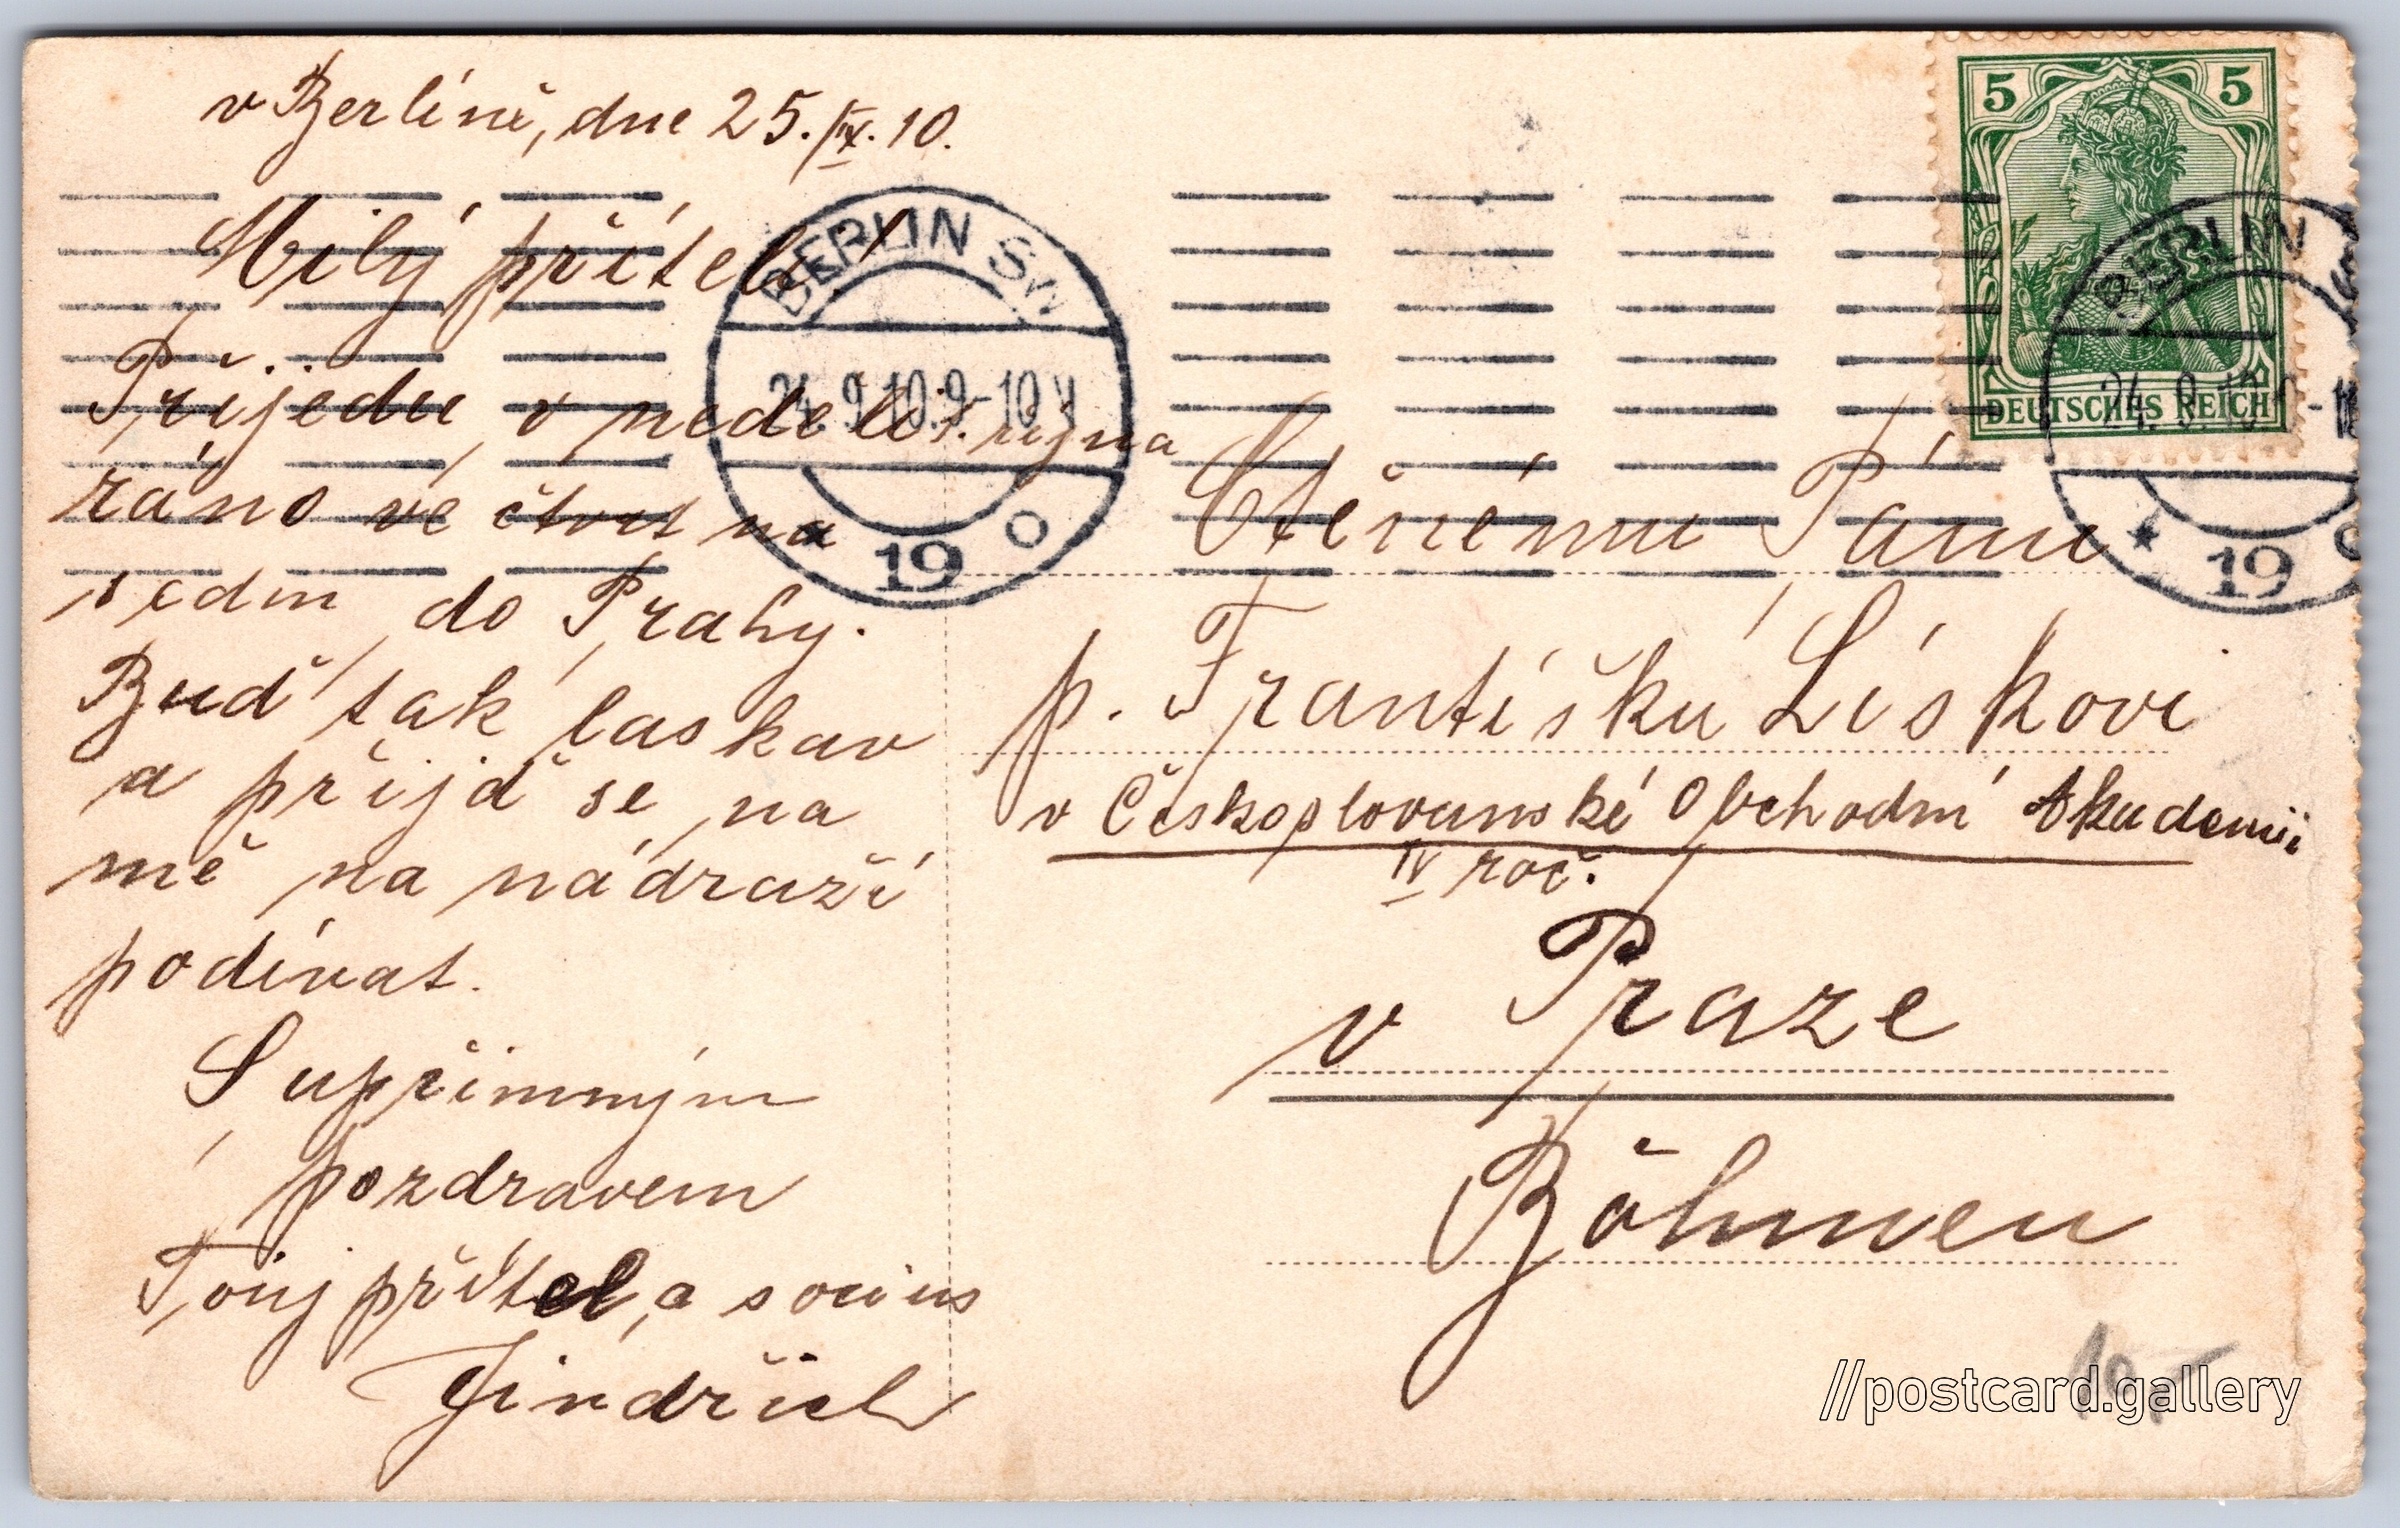 v Berlíně, dne 25./IX. 10.
Milý příteli!
Přijedu v neděli 2. října
ráno ve čtvrt na
sedm do Prahy.
Buď tak laskav
a přijď se na
mě na nádraží
podívat.
S upřímným
pozdravem
Tvůj přítel a socius
Jindřich
BERLIN SW
24.9.10.9-10V
19
5 5
DEUTSCHES REICH
BERLIN
24.9.10
19
Ctěnému Pánu
p. Františku Lískovi
v Českoslovanské Obchodní Akademii
IV roč.
v Praze
Böhmen
10,-
//postcard.gallery